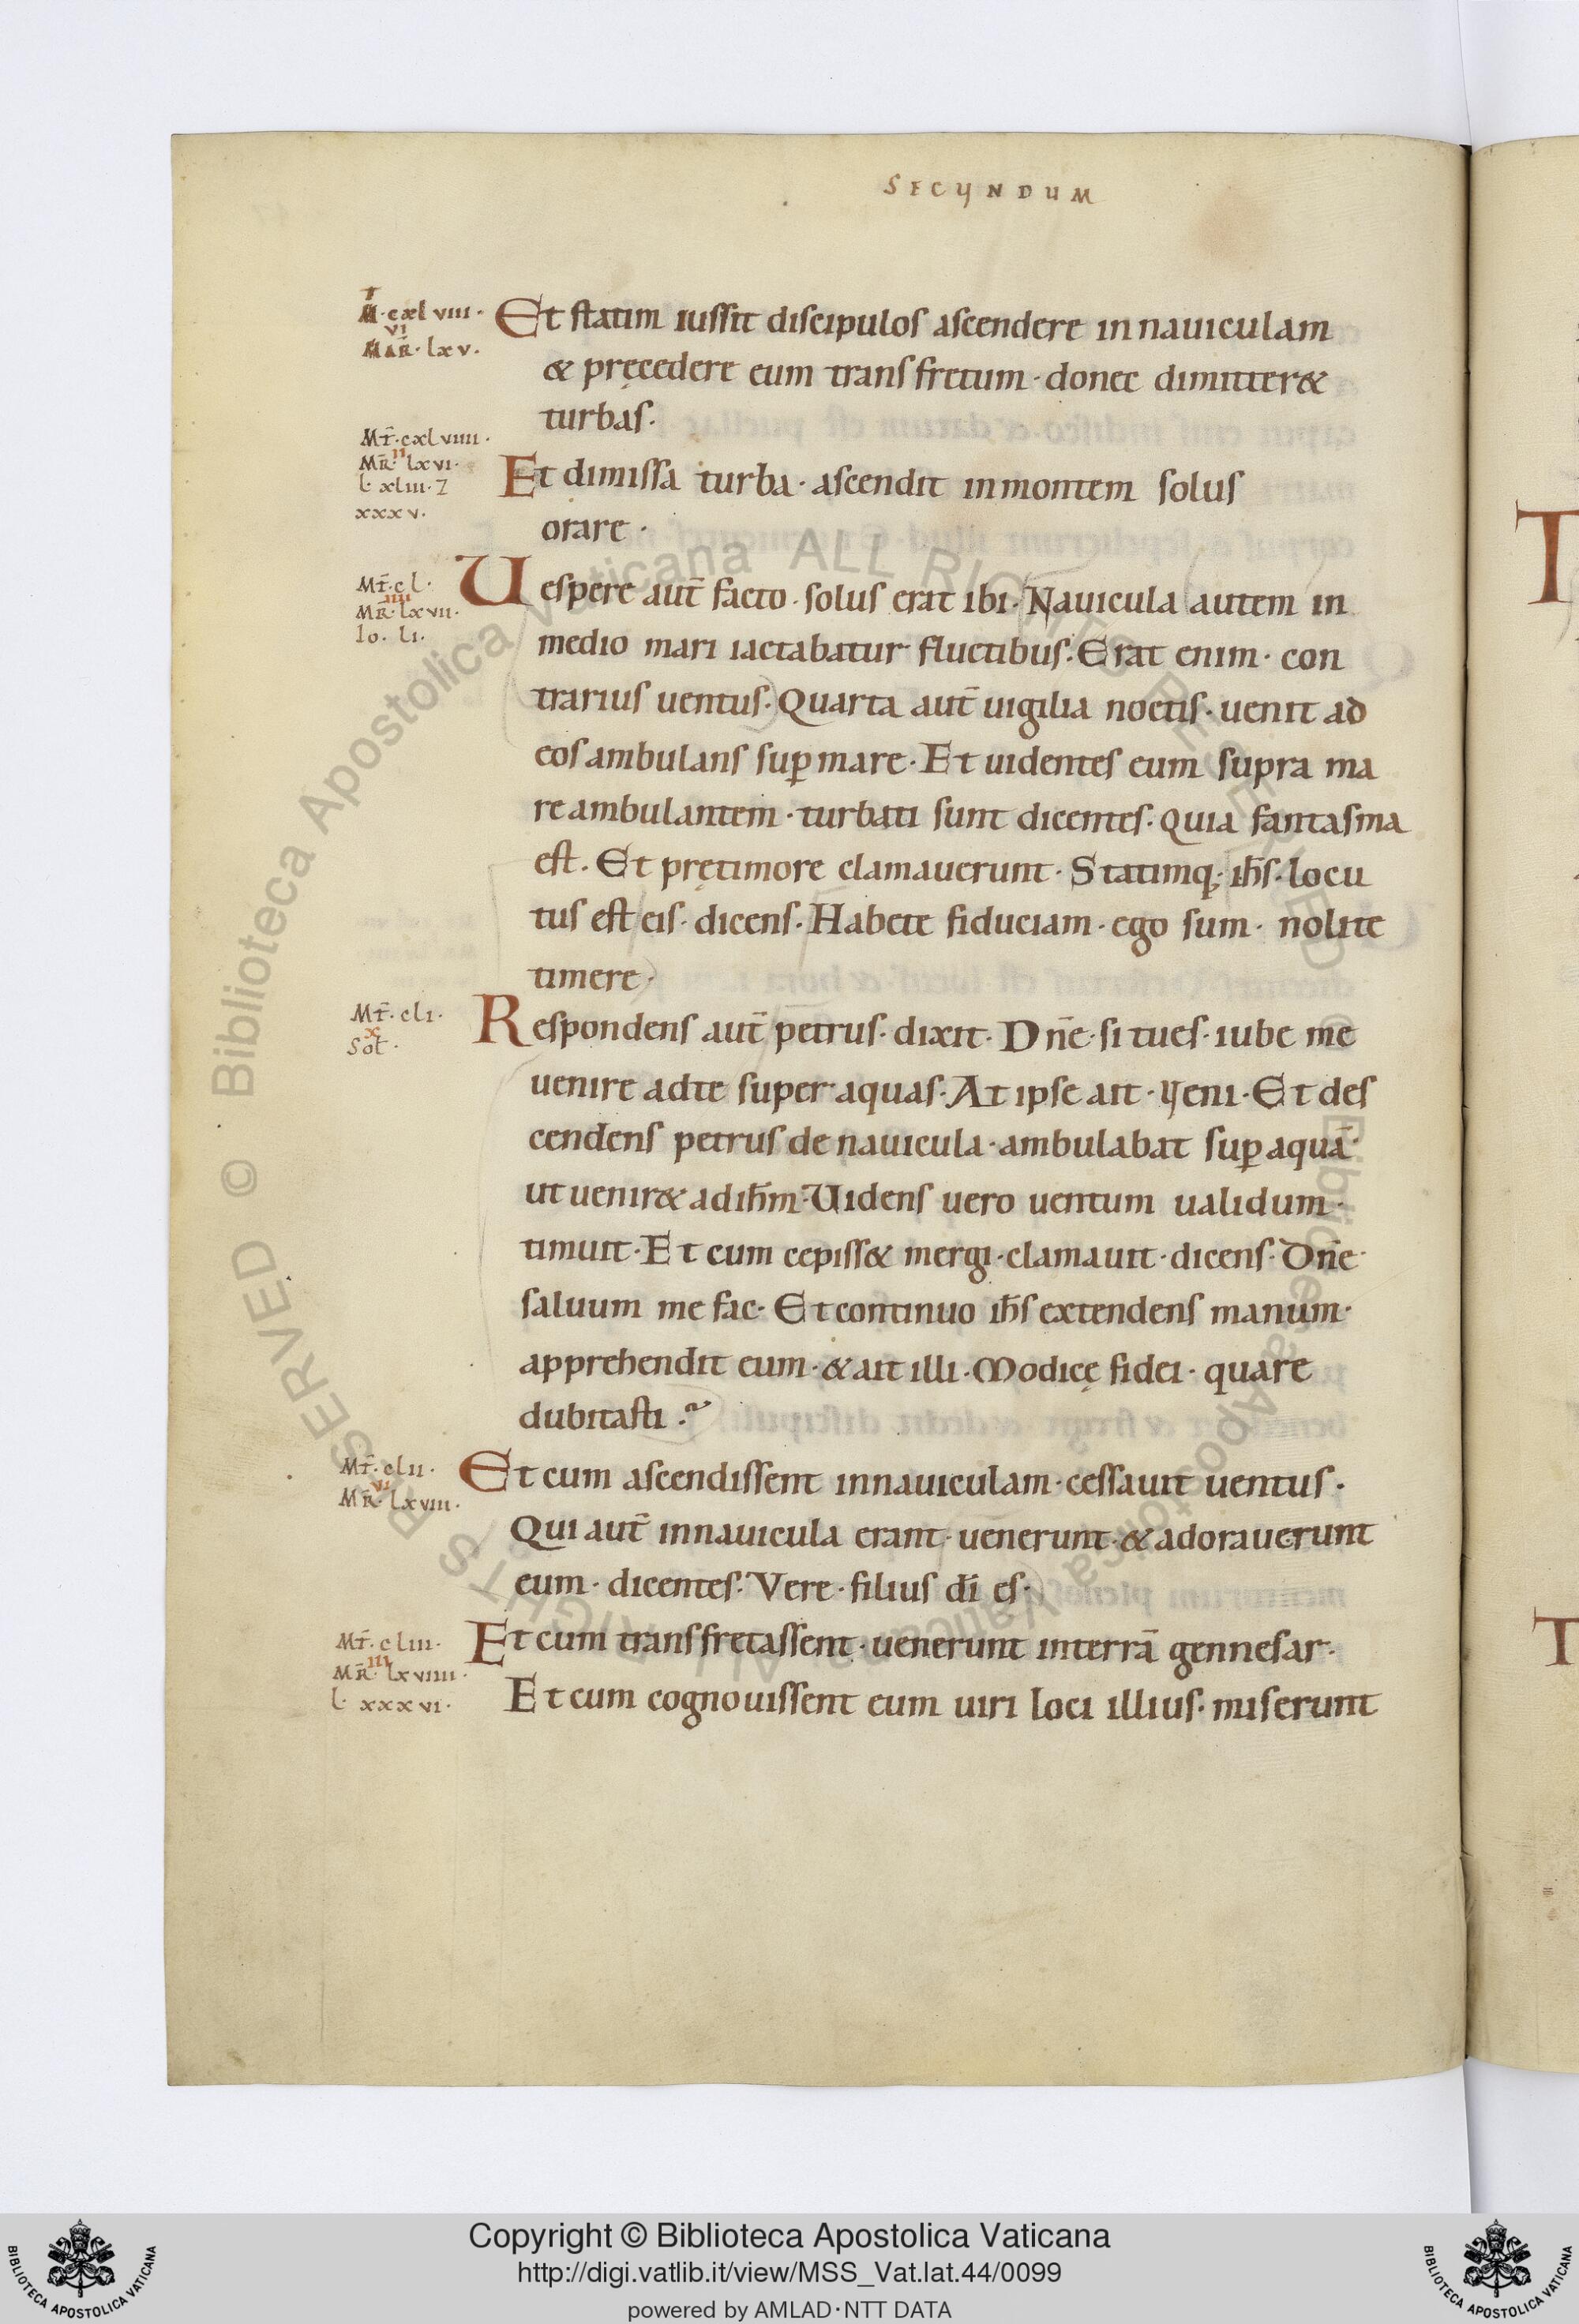 SECYNDUM
M̄·cxlviii·
vi
MAR̄·lxv·
Et statim iussit discipulos ascendere innauiculam
& pręcedere eum trans fretum·donec dimitter&
turbas·
Mt̄·cxlviiii·
ii
MR̄·lxvi·
l·xliii·7
xxxv·
Et dimissa turba·ascendit inmontem solus
orare·
Mt̄·cl·
iiii
MR̄·lxvii·
Io·li·
Uespere aut̄ facto·solus erat ibi·Nauicula autem in
medio mari iactabatur fluctibus·Erat enim·con
trarius uentus·Quarta aut̄ uigilia noctis·uenit ad
eos ambulans suꝑ mare·Et uidentes eum supra ma
re ambulantem·turbati sunt dicentes·Quia fantasma
est·Et prętimore clamauerunt·Statimq;·ih̄s·locu
tus est eis·dicens·Habete fiduciam·ego sum·nolite
timere·
Mt̄·cli·
x
Sol̄·
Respondens aut̄ petrus·dixit·Dn̄e·si tu es·iube me
uenire adte super aquas·At ipse ait·Yeni·Et des
cendens petrus de nauicula·ambulabat suꝑ aquā·
ut uenir& ad ih̄m·Uidens uero uentum ualidum·
timuit·Et cum cepiss& mergi·clamauit·dicens·Dn̄e·
saluum me fac·Et continuo ih̄s extendens manum·
apprehendit eum·& ait illi·Modicę fidei·quare
dubitasti?
Mt̄·clii·
vi
MR̄·lxviii·
Et cum ascendissent innauiculam·cessauit uentus·
Qui aut̄ innauicula erant·uenerunt·& adorauerunt
eum·dicentes·Vere·filius dī es·
Mt̄·cliii·
iii
MR̄·lxviiii·
l·xxxvi·
Et cum transfretassent·uenerunt interrā gennesar·
Et cum cognouissent eum uiri loci illius·miserunt
© Biblioteca Apostolica Vaticana ALL RIGHTS RESERVED © Biblioteca Apostolica Vaticana ALL RIGHTS RESERVED
Copyright © Biblioteca Apostolica Vaticana
http://digi.vatlib.it/view/MSS_Vat.lat.44/0099
powered by AMLAD·NTT DATA
BIBLIOTECA APOSTOLICA VATICANA
BIBLIOTECA APOSTOLICA VATICANA